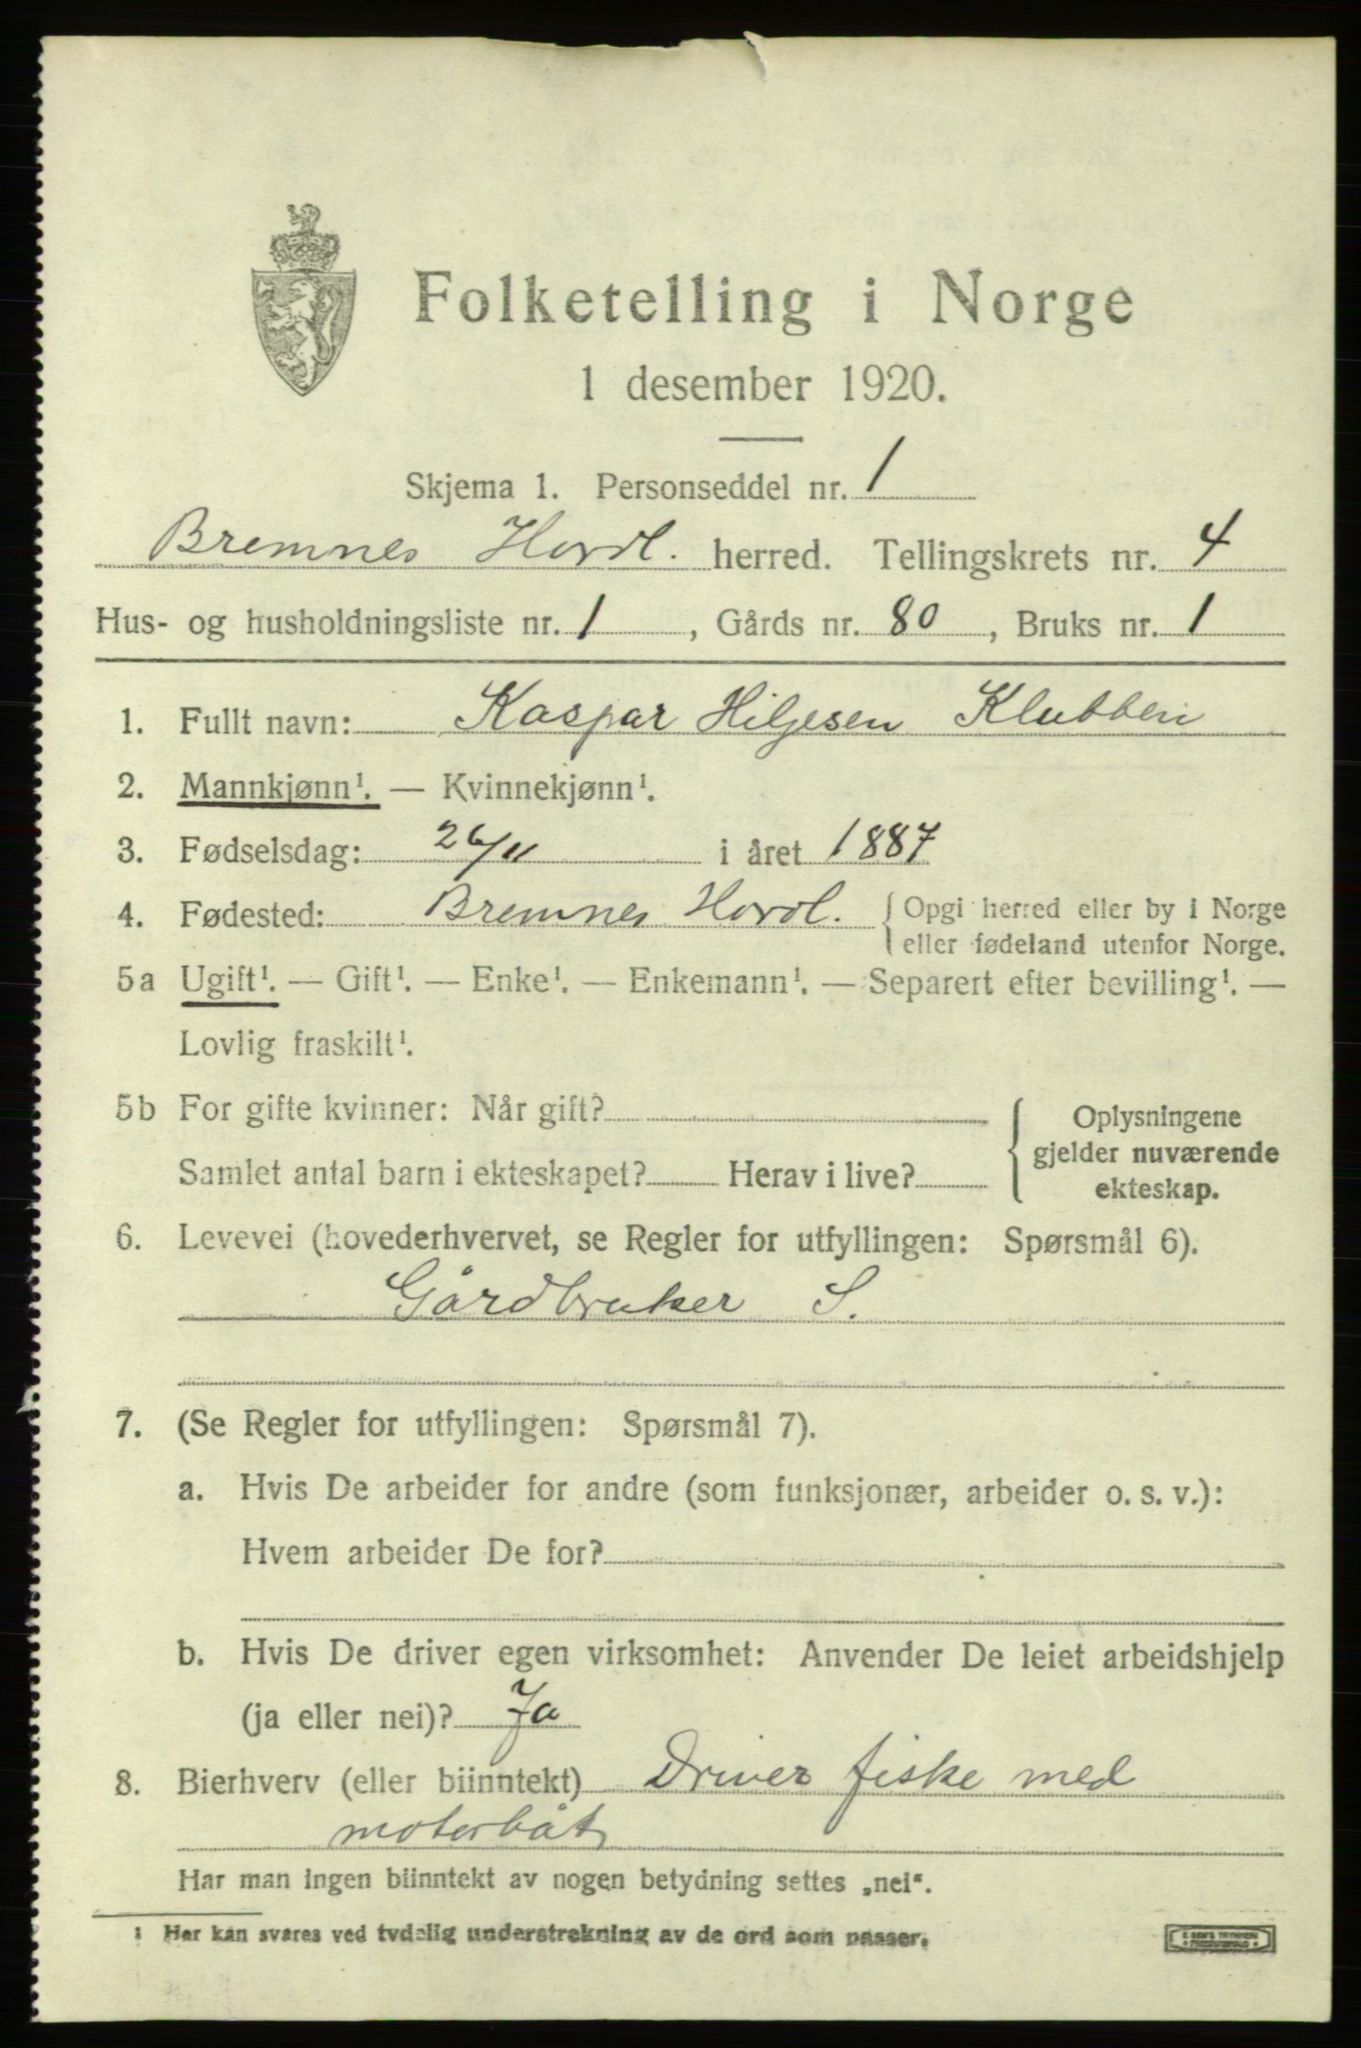 Folketelling i Norge
1 desember 1920.
Skjema 1. Personseddel nr. 1
Bremnes Hordl. herred. Tellingskrets nr. 4
Hus- og husholdningsliste nr. 1, Gårds nr. 80, Bruks nr. 1
1. Fullt navn: Kaspar Hiljesen Klubben
2. Mannkjønn¹. — Kvinnekjønn¹.
3. Fødselsdag: 26/11 i året 1887
4. Fødested: Bremnes Hordl. { Opgi herred eller by i Norge
eller fødeland utenfor Norge.
5a Ugift¹. — Gift¹. — Enke¹. — Enkemann¹. — Separert efter bevilling¹. —
Lovlig fraskilt¹.
5b For gifte kvinner: Når gift?
Samlet antal barn i ekteskapet? Herav i live?
Oplysningene
gjelder nuværende
ekteskap.
6. Levevei (hovederhvervet, se Regler for utfyllingen: Spørsmål 6).
Gårdbruker S.
7. (Se Regler for utfyllingen: Spørsmål 7).
a. Hvis De arbeider for andre (som funksjonær, arbeider o. s. v.):
Hvem arbeider De for?
b. Hvis De driver egen virksomhet: Anvender De leiet arbeidshjelp
(ja eller nei)? Ja
8. Bierhverv (eller biinntekt) Driver fiske med
motorbåt
Har man ingen biinntekt av nogen betydning settes „nei“.
¹ Her kan svares ved tydelig understrekning av de ord som passer.